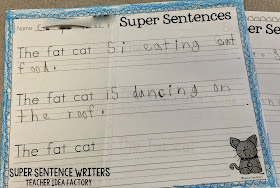 Name
Super Sentences
The fat cat Si eating eat
food.
The fat cat is dancing on
the roof.
The fat cat
SUPER SENTENCE WRITERS
TEACHER IDEA FACTORY